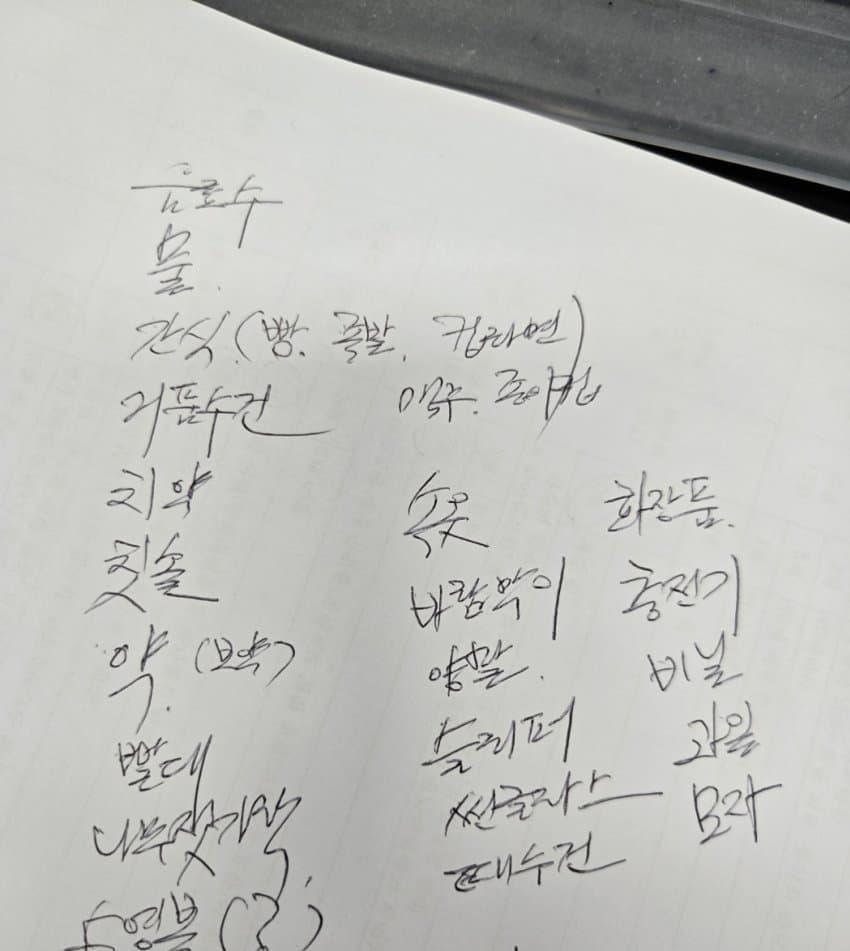 음료수
물.
간식.(빵. 족발. 컵라면)
거품수건 맥주. 종이컵
치약 속옷 화장품.
칫솔 바람막이 충전기
약. (보약) 양말. 비닐
빨대 슬리퍼 과일
나무젓가락, 썬글라스 모자
때수건
수영복(?)